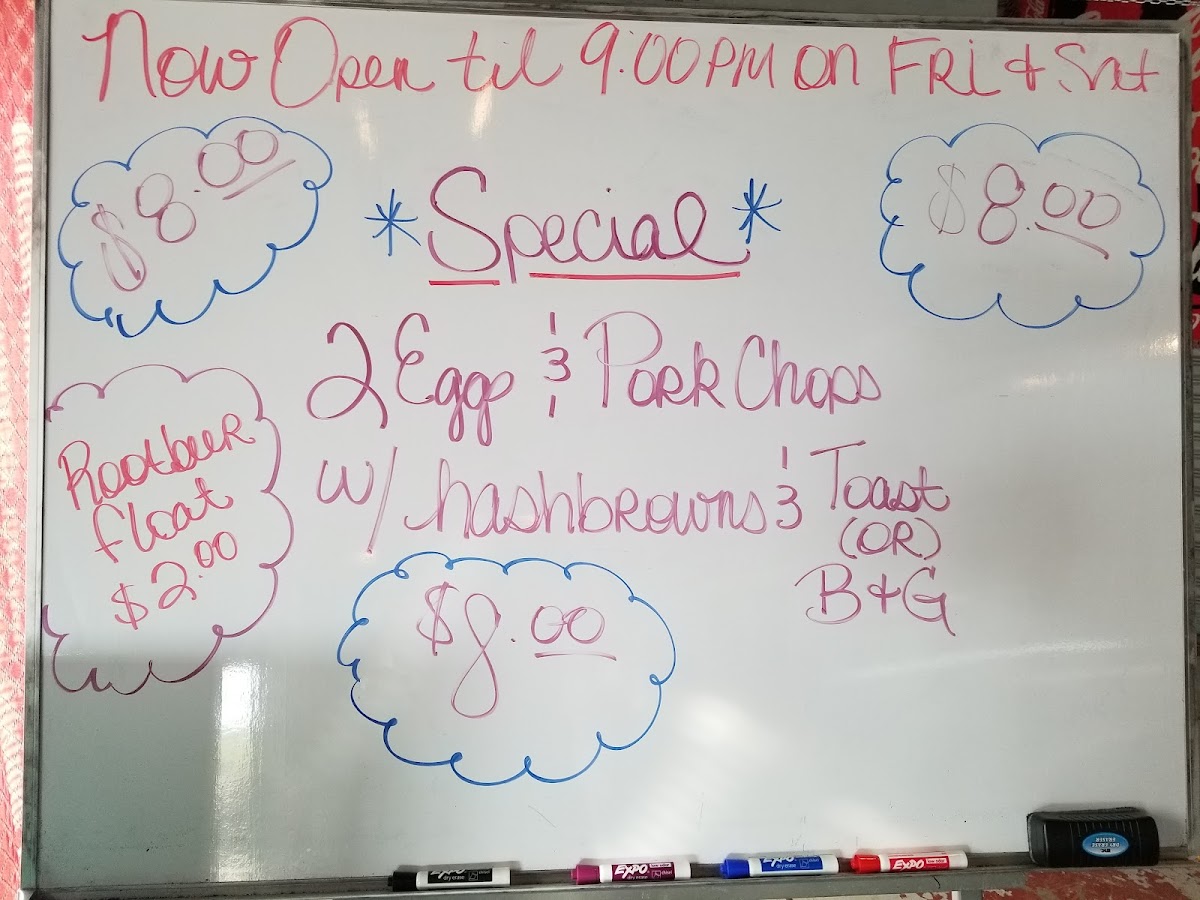 Now Open til 9:00PM on FRi & Sat
$8.00
*Special*
$8.00
2 Eggs & Pork Chops
w/ hashbrowns & Toast
(OR)
B+G
Rootbeer
float
$2.00
$8.00
EXPO
dry erase
EXPO
dry erase
EXPO
dry erase
EXPO